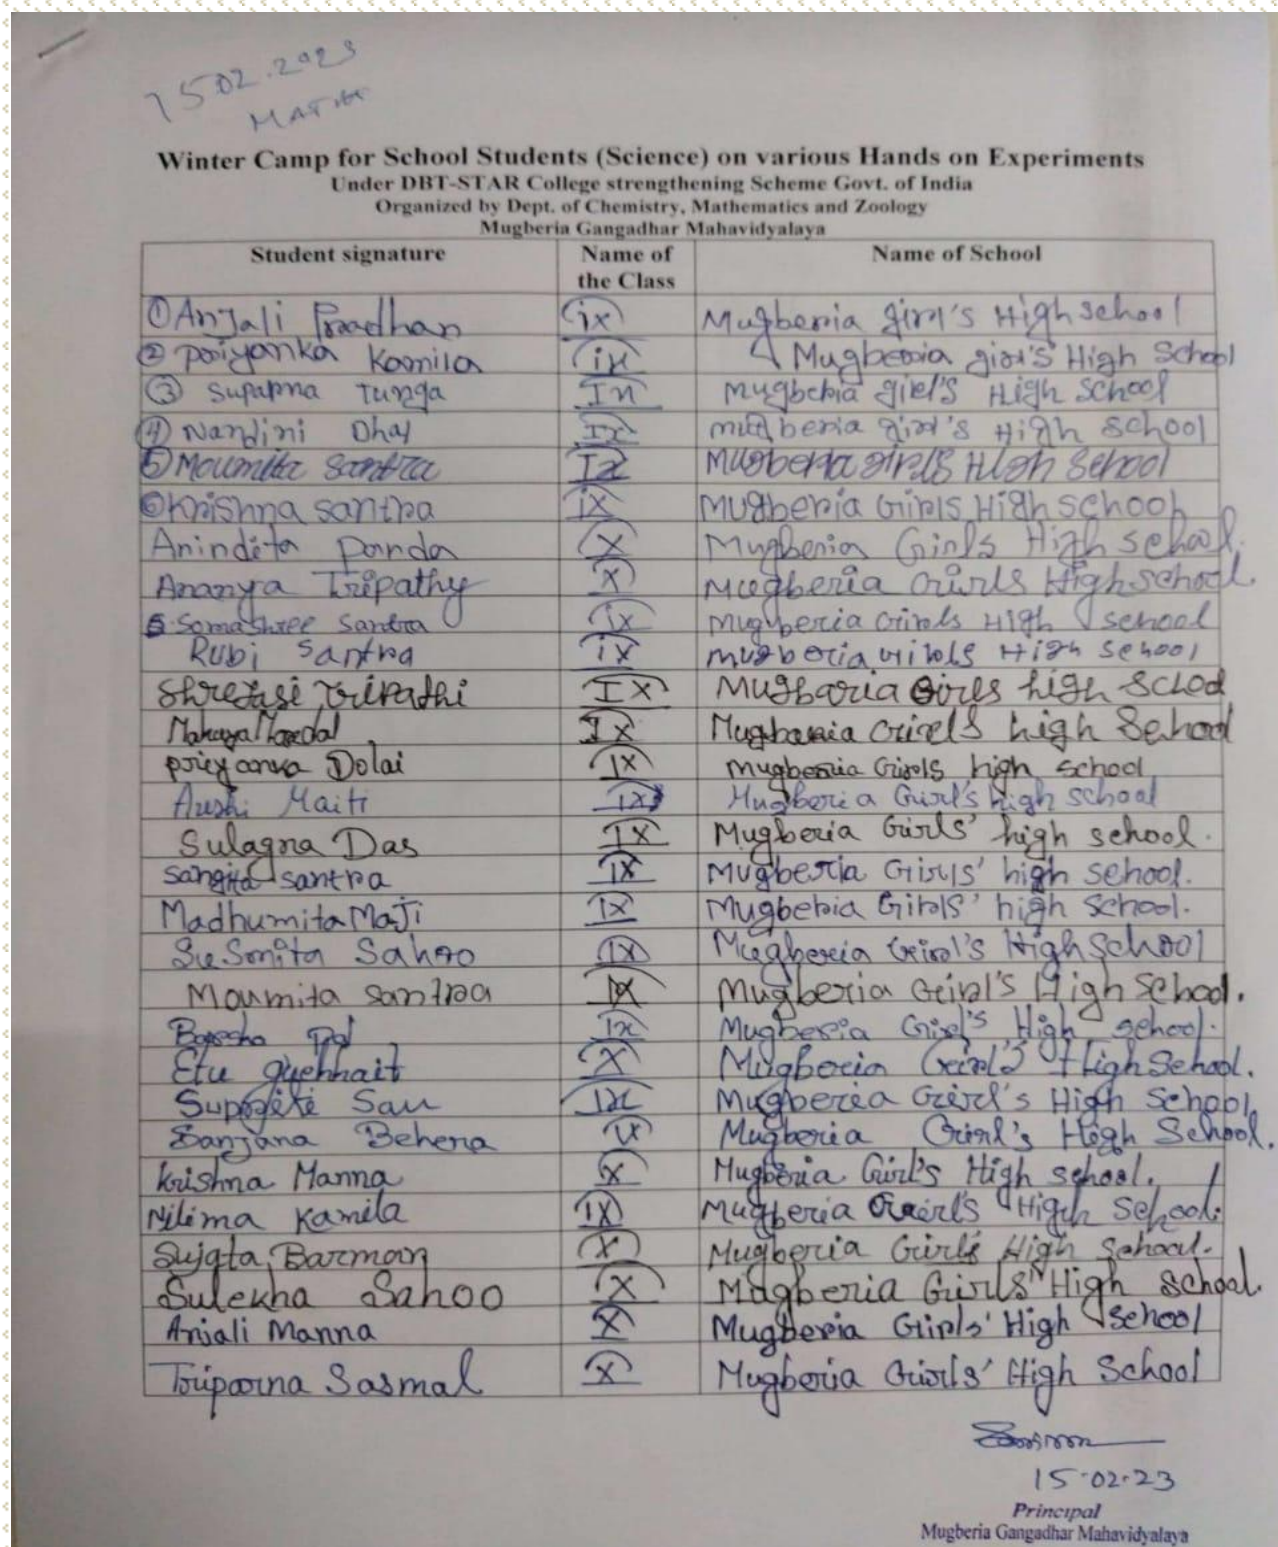 15.02.2023
MATH
Winter Camp for School Students (Science) on various Hands on Experiments
Under DBT-STAR College strengthening Scheme Govt. of India
Organized by Dept. of Chemistry, Mathematics and Zoology
Mugberia Gangadhar Mahavidyalaya
Student signature Name of the Class Name of School
① Anjali Pradhan ix Mugberia girl's High school
② Priyanka Kamila ix Mugberia girl's High School
③ Suparna Tunga Ix Mugberia girl's High School
④ Nandini Dhal Ix mugberia girl's High School
⑤ Moumita Santra Ix Mugberia girls High School
⑥ Krishna santra ix Mugberia Girls High school
Anindita Panda X Mugberia Girls High school.
Ananya Tripathy X Mugberia Girls High school.
Somashree Santra ix mugberia Girls High school
Rubi Santra ix mugberia Girls High school
Shreyasi Tripathi IX Mugbaria Girls high Sclod
Mandal Ix Mugbaria Girl's high School
priyanka Dolai IX Mugberia Girls high school
Arushi Maiti IX Mugberia Girl's high school
Sulagna Das IX Mugberia Girls' high school.
Sangita santra IX Mugberia Girls' high school.
Madhumita Maji IX Mugberia Girls' high school.
Susmita Sahoo IX Mugberia Girl's High school
Moumita Santra IX Mugberia Girl's High School.
Barsha Pal Ix Mugberia Girl's High school.
Etu guchhait X Mugberia Girl's High School.
Sau Ix Mugberia Girl's High School.
Sanjana Behera Mugberia Girl's High School.
Krishna Manna X Mugberia Girl's High school.
Nilima Kamila IX Mugberia Girl's High School.
Sujata Barman X Mugberia Girls High School.
Sulekha Sahoo X Mugberia Girls' High School.
Anjali Manna X Mugberia Girls' High School
Triparna Sasmal X Mugberia Girls' High School
15.02.23
Principal
Mugberia Gangadhar Mahavidyalaya